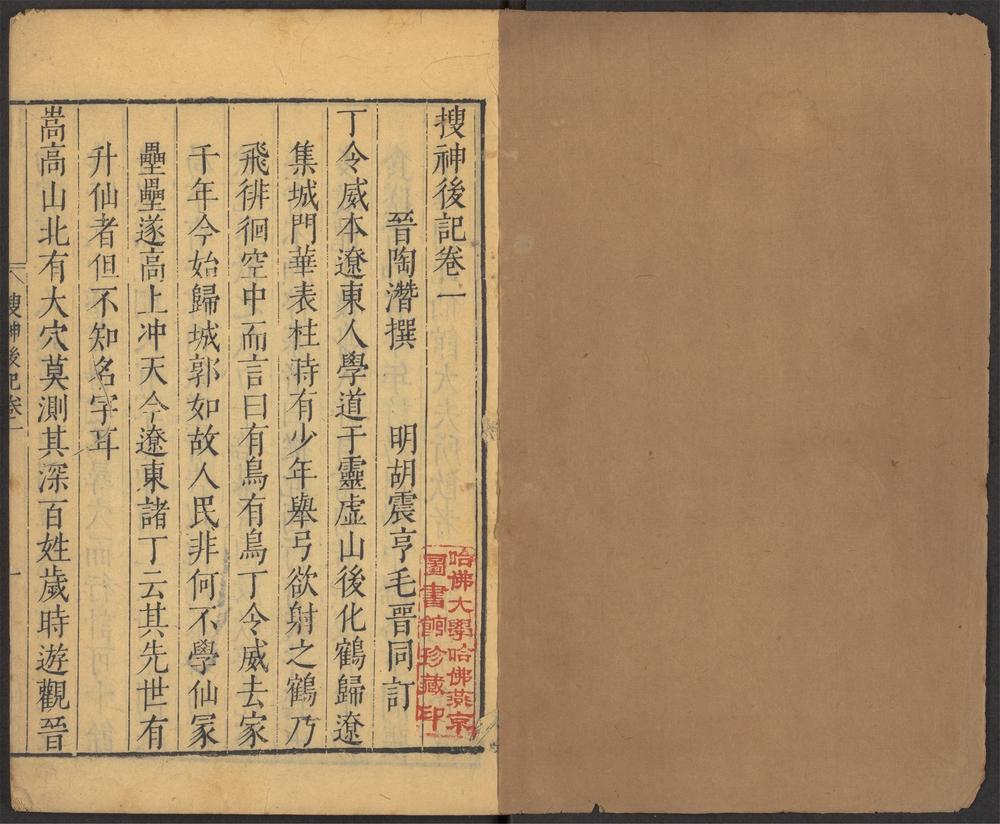 搜神後記卷一
晉陶潛撰　明胡震亨毛晉同訂
丁令威本遼東人學道于靈虛山後化鶴歸遼
集城門華表柱時有少年舉弓欲射之鶴乃
飛徘徊空中而言曰有鳥有鳥丁令威去家
千年今始歸城郭如故人民非何不學仙冢
壘壘遂高上冲天今遼東諸丁云其先世有
升仙者但不知名字耳
嵩高山北有大穴莫測其深百姓歲時遊觀晉
搜神後記卷一
一
哈佛大學哈佛燕京
圖書館珍藏印